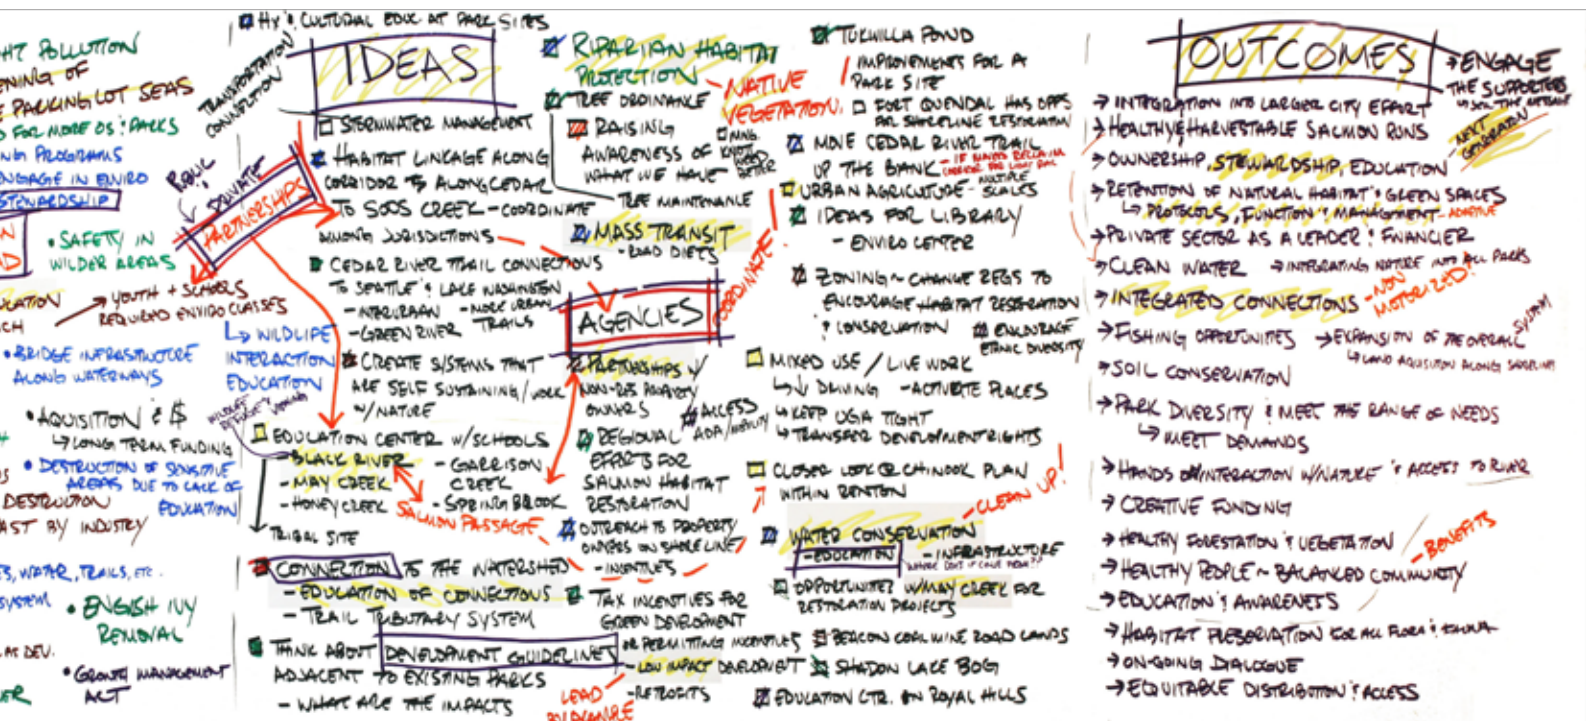 HT POLLUTION
ENING OF
E PARKING LOT SEAS
FOR MORE OS & PARKS
NG PROGRAMS
NGAGE IN ENVIRO
STEWARDSHIP
• SAFETY IN
WILDER AREAS
→ YOUTH + SCHOOLS
REQUIRED ENVIRO CLASSES
UCATION
CH
↳ WILDLIFE
INTERACTION
EDUCATION
• BRIDGE INFRASTRUCTURE
ALONG WATERWAYS
• AQUISITION & $
↳ LONG TERM FUNDING
• DESTRUCTION OF SENSITIVE
AREAS DUE TO LACK OF
EDUCATION
DESTRUCTION
AST BY INDUSTRY
S, WATER, TRAILS, ETC.
SYSTEM
• ENGISH IVY
REMOVAL
AS DEV.
• GROWTH MANAGEMENT
ACT
HX & CULTURAL EDUC AT PARK SITES
TRANSPORTATION
CONNECTION
IDEAS
PUBLIC
PRIVATE
PARTNERSHIPS
STORMWATER MANAGEMENT
HABITAT LINKAGE ALONG
CORRIDOR & ALONG CEDAR
TO SOOS CREEK - COORDINATE
AMONG JURISDICTIONS
CEDAR RIVER TRAIL CONNECTIONS
TO SEATTLE & LAKE WASHINGTON
- INTERURBAN - MORE URBAN
- GREEN RIVER TRAILS
CREATE SYSTEMS THAT
ARE SELF SUSTAINING/WORK
W/NATURE
EDUCATION CENTER W/SCHOOLS
- BLACK RIVER
- MAY CREEK
- HONEY CREEK
- GARRISON
CREEK
- SPRING BROOK
SALMON PASSAGE
TRIBAL SITE
CONNECTION TO THE WATERSHED
- EDUCATION OF CONNECTIONS
- TRAIL TRIBUTARY SYSTEM
THINK ABOUT DEVELOPMENT GUIDELINES
ADJACENT TO EXISTING PARKS
- WHAT ARE THE IMPACTS
RIPARIAN HABITAT
PROTECTION - NATIVE
VEGETATION.
TREE ORDINANCE
RAISING
AWARENESS OF
WHAT WE HAVE
TREE MAINTENANCE
MASS TRANSIT
- ROAD DIETS
AGENCIES
COORDINATE!
PARTNERSHIPS W/
OWNERS
ACCESS
ADA/MOBILITY
REGIONAL
EFFORTS FOR
SALMON HABITAT
RESTORATION
OUTREACH TO PROPERTY
OWNERS ON SHORELINE
- INCENTIVES
TAX INCENTIVES FOR
GREEN DEVELOPMENT
OR PERMITTING INCENTIVES
- LOW IMPACT DEVELOPMENT
- RETROFITS
LEAD
BY EXAMPLE
TUKWILLA POND
IMPROVEMENTS FOR A
PARK SITE
FORT QUENDAL HAS OPPS
FOR SHORELINE RESTORATION
MOVE CEDAR RIVER TRAIL
UP THE BANK
URBAN AGRICULTURE - MULTIPLE SCALES
IDEAS FOR LIBRARY
- ENVIRO CENTER
ZONING ~ CHANGE REGS TO
ENCOURAGE HABITAT RESTORATION
& CONSERVATION
ENCOURAGE
ETHNIC DIVERSITY
MIXED USE / LIVE WORK
↳ ↓ DRIVING - ACTIVATE PLACES
↳ KEEP UGA TIGHT
↳ TRANSFER DEVELOPMENT RIGHTS
CLOSER LOOK @ CHINOOK PLAN
WITHIN RENTON
- CLEAN UP!
WATER CONSERVATION
- EDUCATION - INFRASTRUCTURE
WHERE DOES IT COME FROM??
OPPORTUNITIES W/MAY CREEK FOR
RESTORATION PROJECTS
BEACON COAL MINE ROAD LANDS
SHADOW LAKE BOG
EDUCATION CTR. ON ROYAL HILLS
OUTCOMES
→ ENGAGE
THE SUPPORTERS
↳ SELL THE MESSAGE
NEXT
GENERATION
→ INTEGRATION INTO LARGER CITY EFFORT
→ HEALTHY & HARVESTABLE SALMON RUNS
→ OWNERSHIP, STEWARDSHIP, EDUCATION
→ RETENTION OF NATURAL HABITAT & GREEN SPACES
↳ PROTOCOLS, FUNCTION & MANAGEMENT - ADAPTIVE
→ PRIVATE SECTOR AS A LEADER & FINANCIER
→ CLEAN WATER → INTEGRATING NATURE INTO ALL PARKS
→ INTEGRATED CONNECTIONS - NON
MOTORIZED!
→ FISHING OPPORTUNITIES → EXPANSION OF THE OVERALL SYSTEM
↳ LAND AQUISITION ALONG SHORELINE
→ SOIL CONSERVATION
→ PARK DIVERSITY & MEET THE RANGE OF NEEDS
↳ MEET DEMANDS
→ HANDS ON/INTERACTION W/NATURE & ACCESS TO RIVER
→ CREATIVE FUNDING
→ HEALTHY FORESTATION & VEGETATION
- BENEFITS
→ HEALTHY PEOPLE ~ BALANCED COMMUNITY
→ EDUCATION & AWARENESS
→ HABITAT PRESERVATION FOR ALL FLORA & FAUNA
→ ON-GOING DIALOGUE
→ EQUITABLE DISTRIBUTION & ACCESS